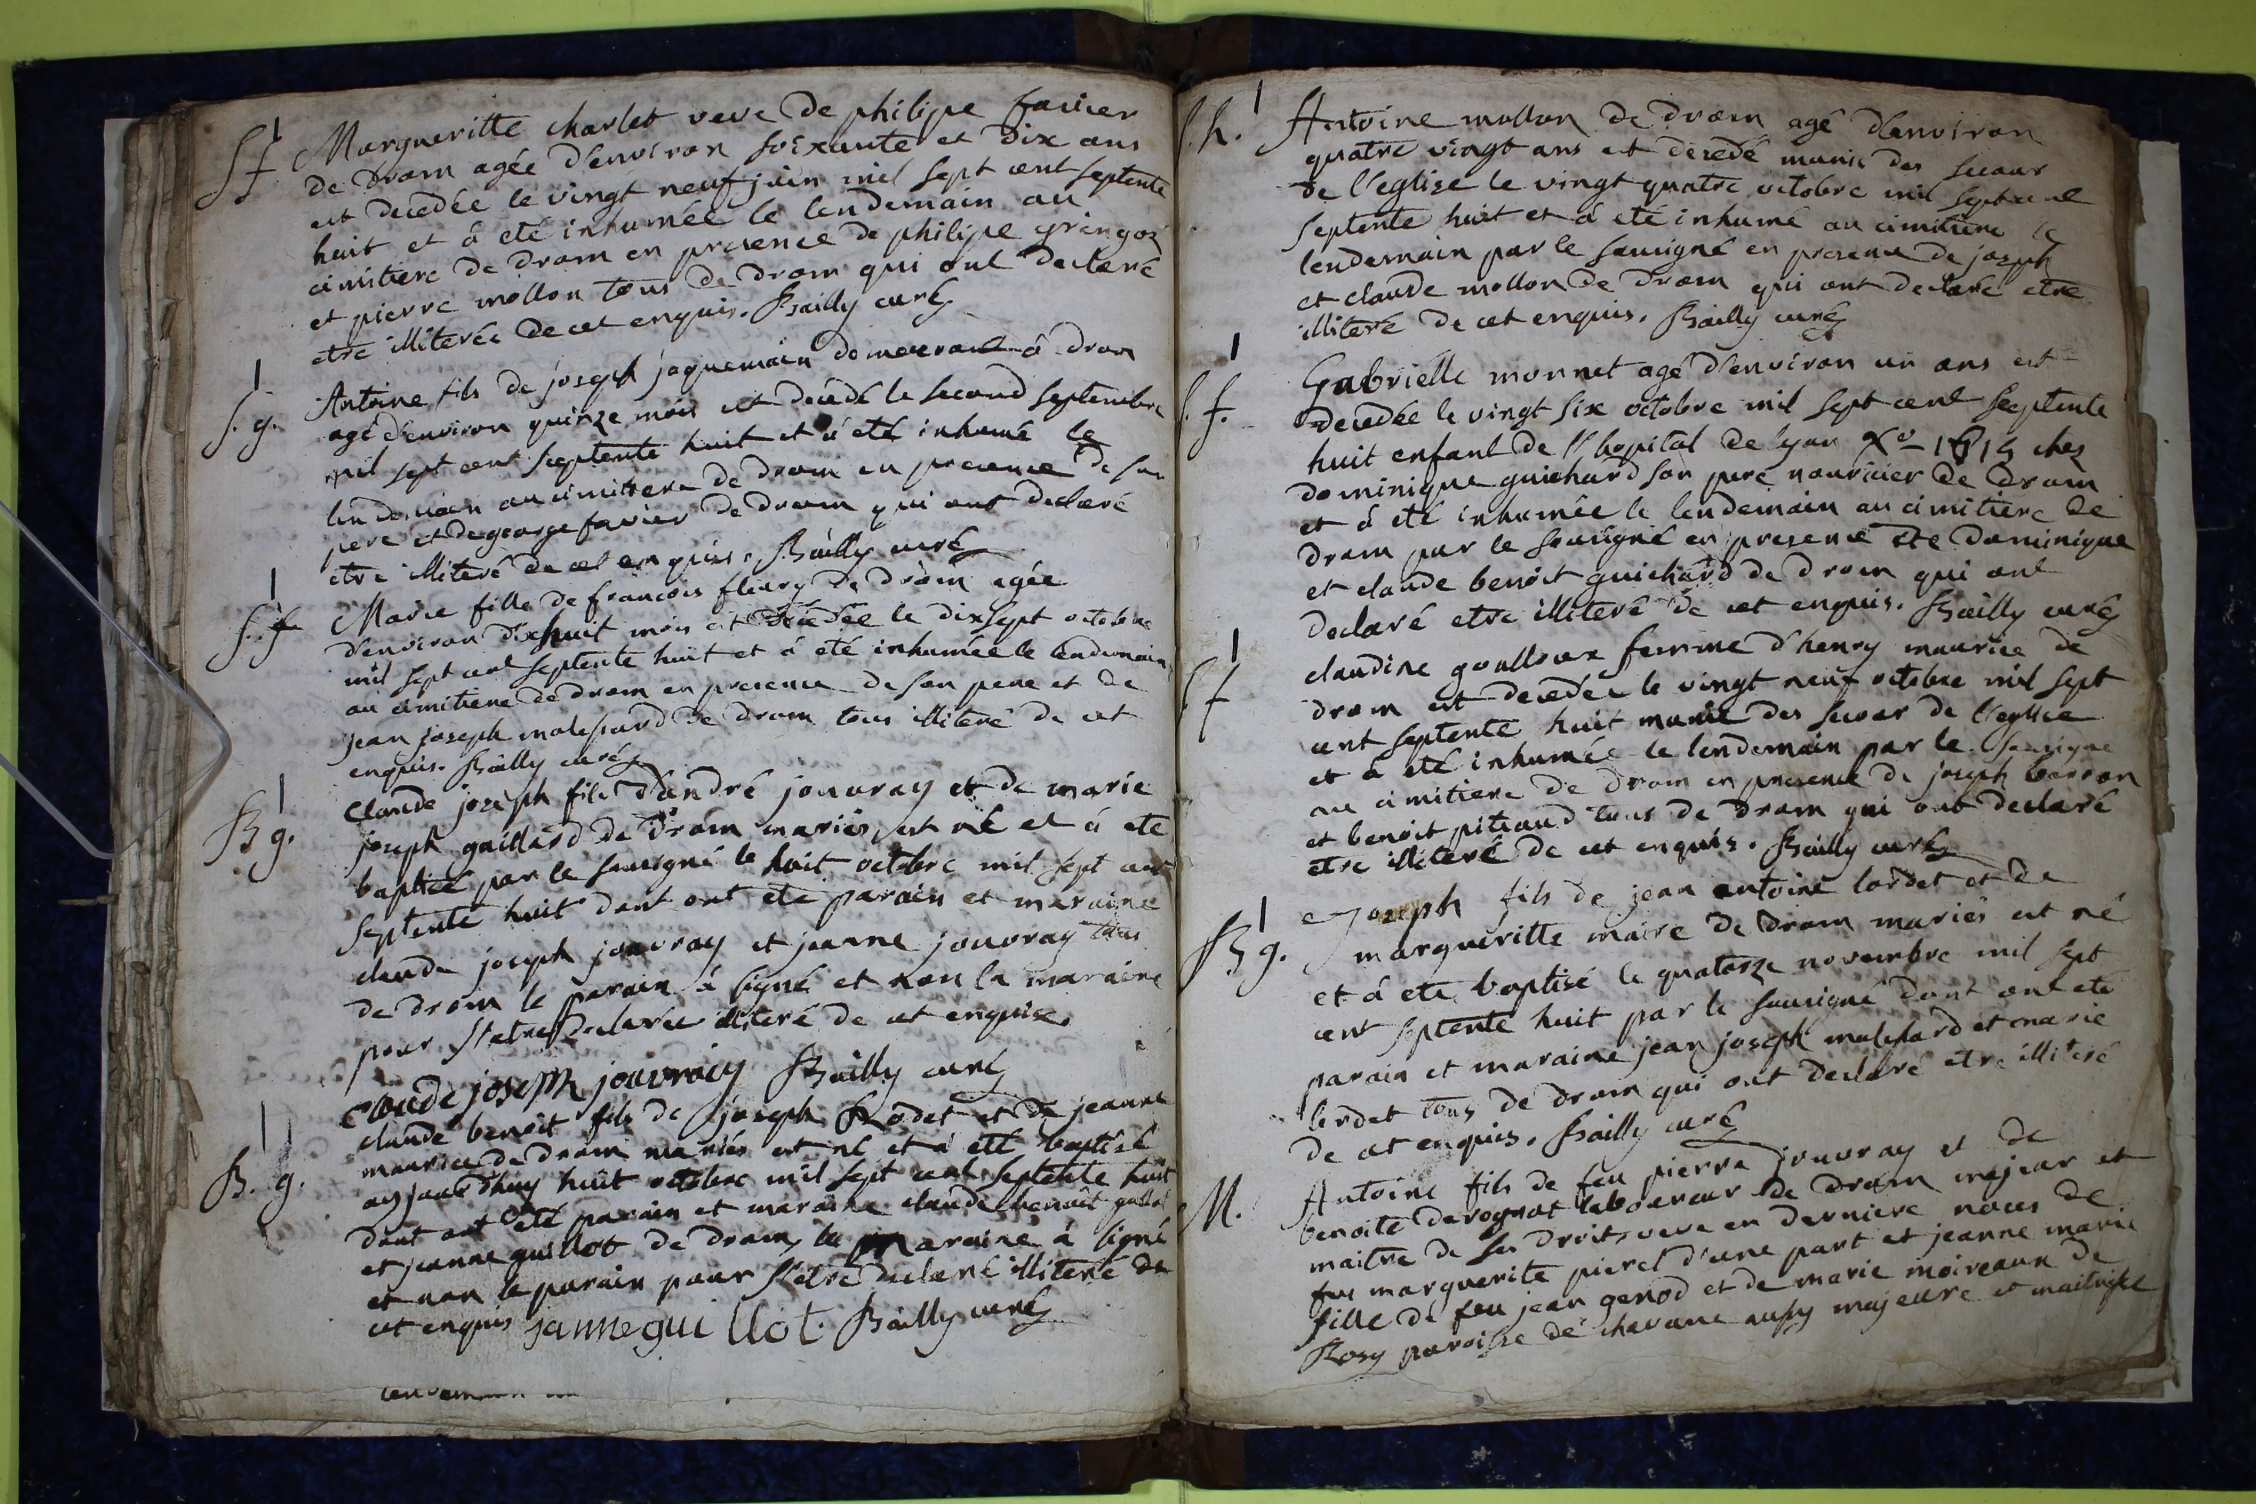 S f
Margueritte charlet veve de philipe favier
de drom agée d'environ soixante et dix ans
est decedée le vingt neuf juin mil sept cent septente
huit et á eté inhumée le lendemain au
cimitiere de drom en presence de philipe gringoz
et pierre mollon tous de drom qui ont declaré
etre illiterée de cet enquis. Bailly curé
S. g.
Antoine fils de joseph jaquemain demeurant á drom
agé d'environ quinze mois est decedé le second septembre
mil sept cent septente huit et á eté inhumé le
lendemain au cimitiere de drom en presence de son
pere et de george favier de drom qui ont declaré
etre illiteré de cet enquis. Bailly curé
S. f
Marie fille de francois fleury de drom agée
d'environ dixhuit mois est decedée le dixsept octobre
mil sept cent septente huit et á eté inhumée le lendemain
au cimitiere de drom en presence de son pere et de
jean joseph malchard de drom tous illiteré de cet
enquis. Bailly curé
B g.
Claude joseph fils d'andré jouvray et de marie
joseph gaillard de drom mariés est né et á ete
baptisé par le sousigné le huit octobre mil sept cent
septente huit dont ont ete parain et maraine
claude joseph jouvray et jeanne jouvray tous
de drom le parain á signé et non la maraine
pour s'etre declarée illiteré de cet enquise.
Claude joseph jouvray Bailly curé
B. g.
claude benoit fils de joseph Rodet et de jeanne
maurice de drom mariés est né et á eté baptisé
aujourd'huy huit octobre mil sept cent septente huit
dont ont été parain et maraine claude benoit
et jeanne guillot de drom, la maraine á signé
et non le parain pour s'étre declaré illiteré de
cet enquis janne guillot. Bailly curé
S. h.
Antoine mollon de drom agé d'environ
quatre vingt ans est decedé munis des secour
de l'eglise le vingt quatre octobre mil sept cent
septente huit et á eté inhumé au cimitiere le
lendemain par le sousigné en presence de joseph
et claude mollon de drom qui ont declaré etre
illiteré de cet enquis. Bailly curé
S. f.
Gabrielle monnet agé d'environ un ans est
decedée le vingt six octobre mil sept cent septente
huit enfant de l'hopital de lyon chez
dominique guichard son pere nouricier de drom
et á eté inhumée le lendemain au cimitiere de
drom par le sousigné en presence de dominique
et claude benoit guichard de drom qui ont
declaré etre illiteré de cet enquis. Bailly curé
S f
claudine goulloux femme d'henry maurice de
drom est decedée le vingt neuf octobre mil sept
cent septente huit munie des secour de l'eglise
et á eté inhumée le lendemain par le sousigné
au cimitiere de drom en presence de joseph barron
et benoit pitiaud tous de drom qui ont declaré
etre illiteré de cet enquis. Bailly curé
B g.
Joseph fils de jean antoine lordet et de
margueritte maire de drom mariés est né
et á ete baptisé le quatorze novembre mil sept
cent septente huit par le sousigné dont ont eté
parain et maraine jean joseph malchard et marie
lordet tous de drom qui ont declaré etre illiteré
de cet enquis. Bailly curé
M.
Antoine fils de feu pierre jouvray et de
benoite derognat laboureur de drom majeur et
maitre de ses droits veve en derniere noces de
feu marguerite pierel d'une part et jeanne marie
fille de feu jean genod et de marie moiveaux de
Rosy paroisse de chavane aussy majeure et maitresse